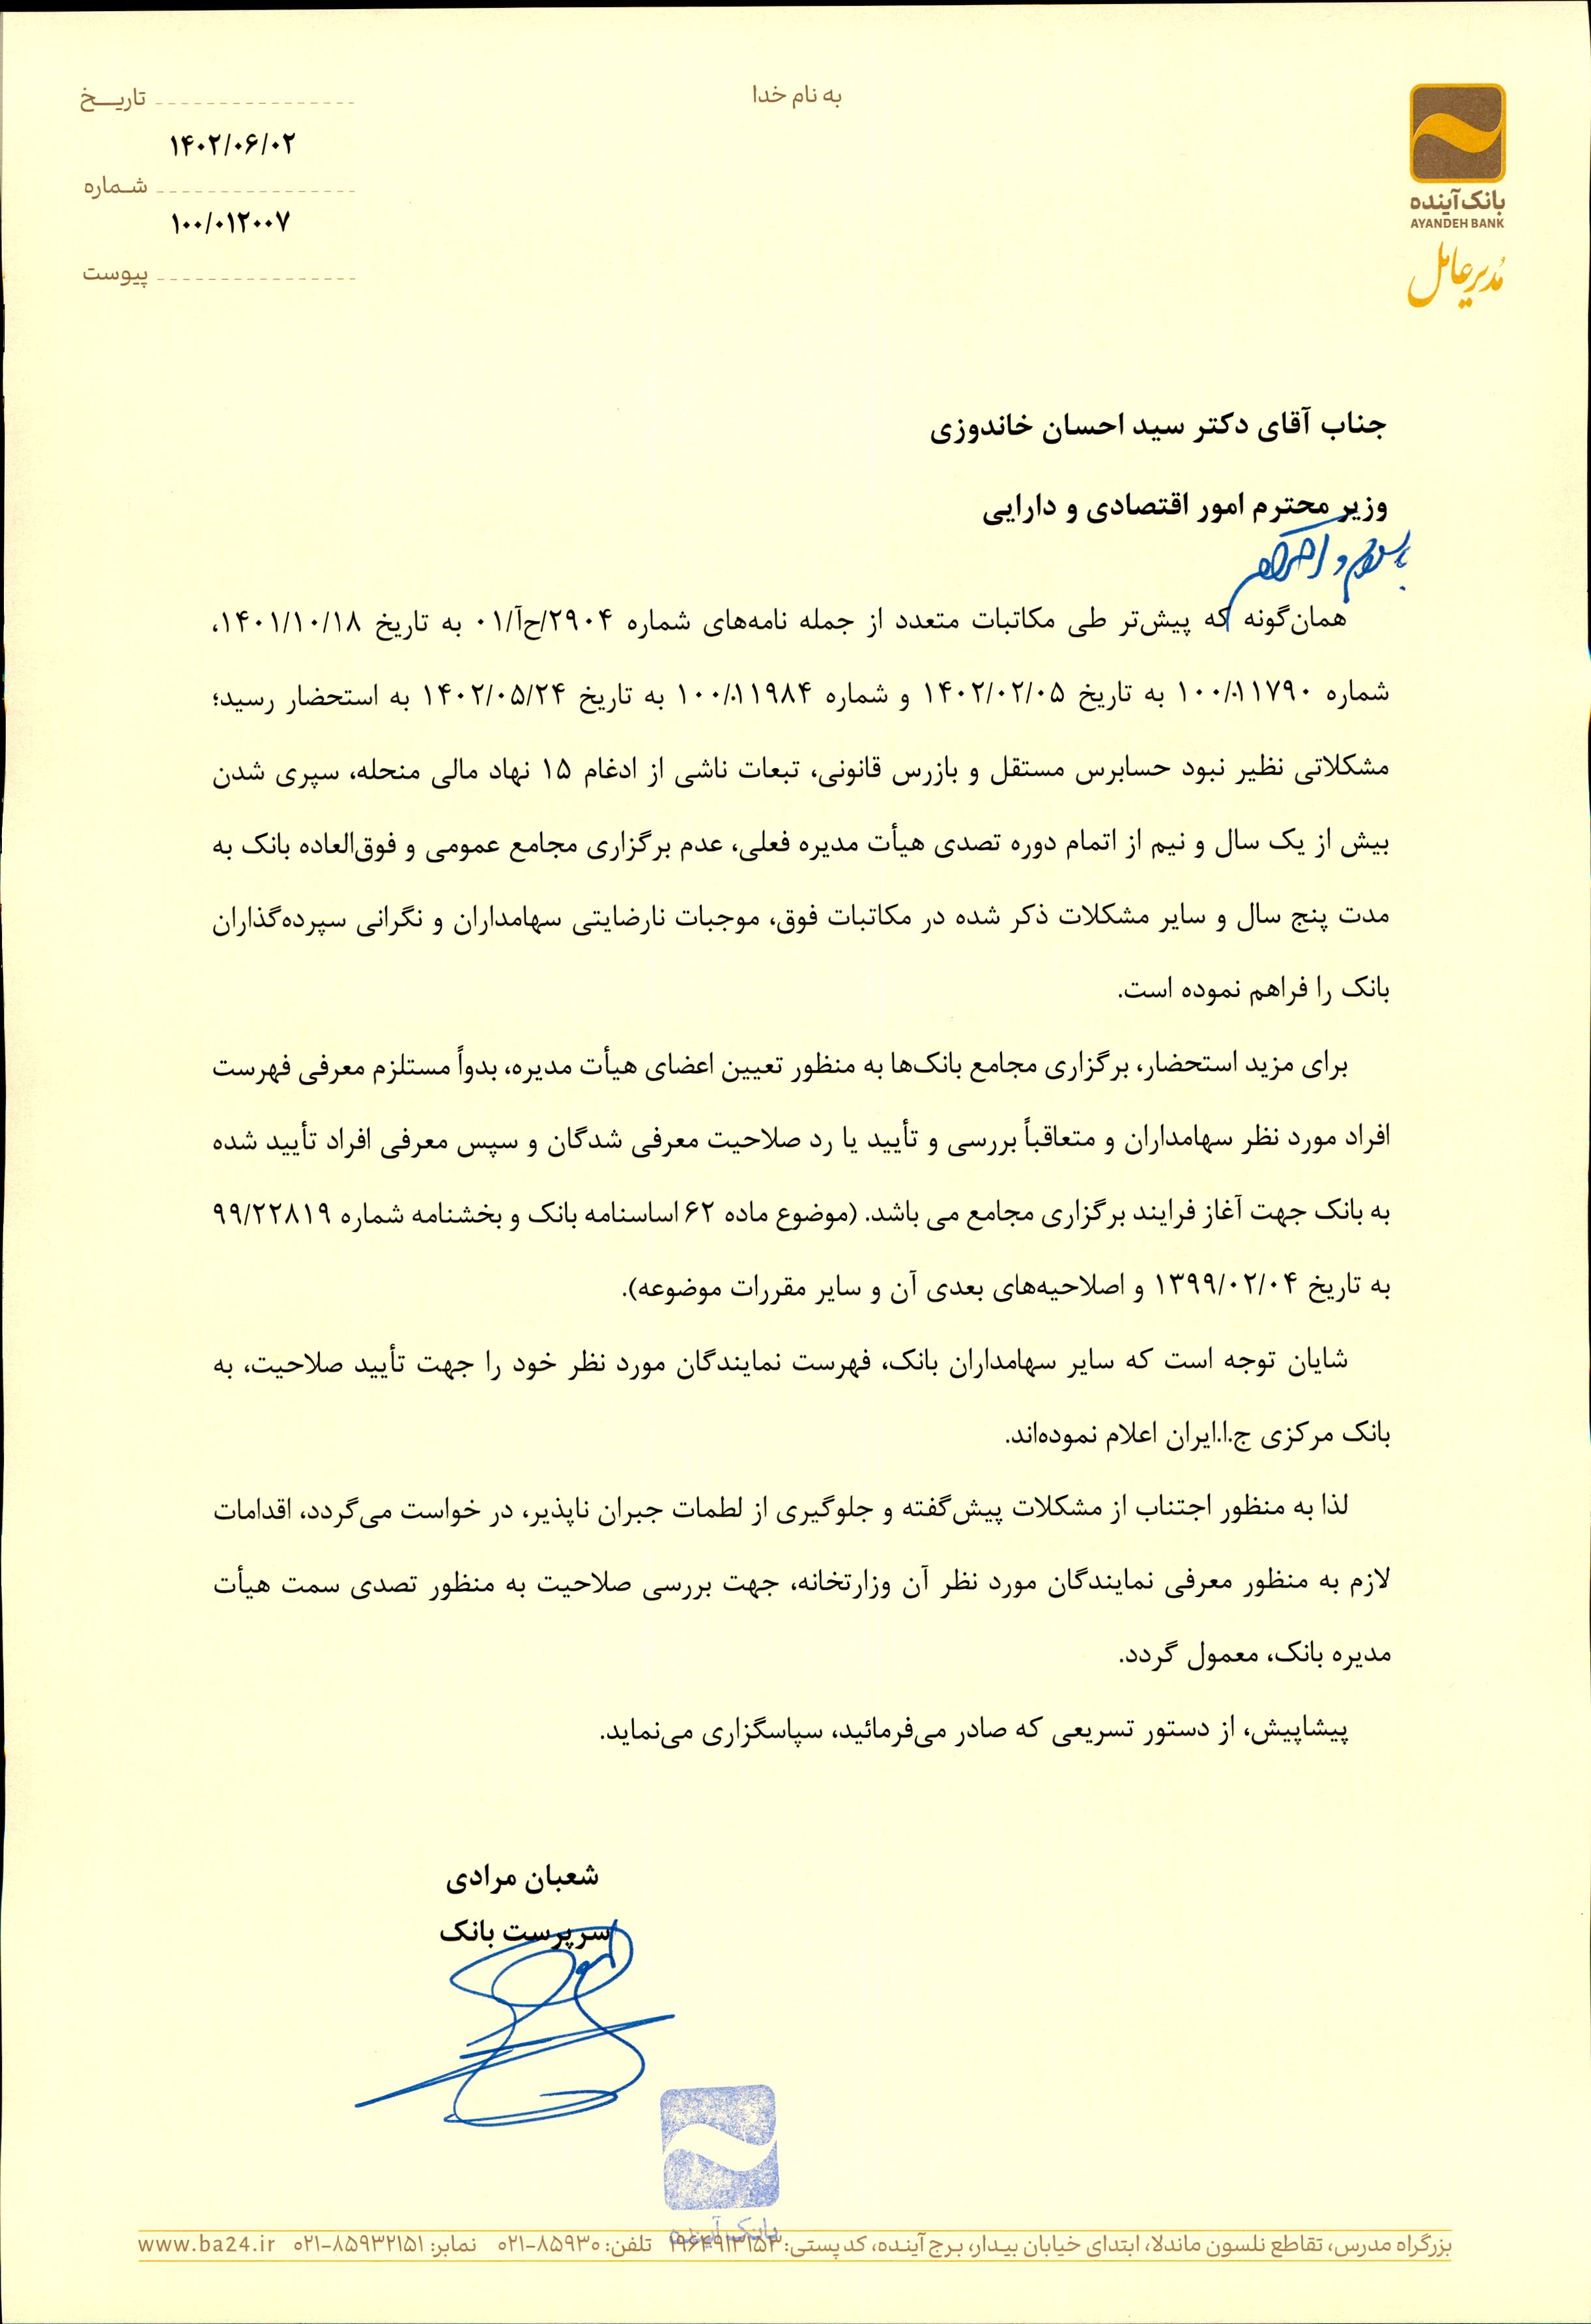 به نام خدا
بانک آینده
AYANDEH BANK
مدیرعامل
تاریـــخ
۱۴۰۲/۰۶/۰۲
شـماره
۱۰۰/۰۱۲۰۰۷
پیوست
جناب آقای دکتر سید احسان خاندوزی
وزیر محترم امور اقتصادی و دارایی
با سلام و احترام
همان‌گونه که پیش‌تر طی مکاتبات متعدد از جمله نامه‌های شماره ۲۹۰۴/ح‌آ/۰۱ به تاریخ ۱۴۰۱/۱۰/۱۸،
شماره ۱۰۰/۰۱۱۷۹۰ به تاریخ ۱۴۰۲/۰۲/۰۵ و شماره ۱۰۰/۰۱۱۹۸۴ به تاریخ ۱۴۰۲/۰۵/۲۴ به استحضار رسید؛
مشکلاتی نظیر نبود حسابرس مستقل و بازرس قانونی، تبعات ناشی از ادغام ۱۵ نهاد مالی منحله، سپری شدن
بیش از یک سال و نیم از اتمام دوره تصدی هیأت مدیره فعلی، عدم برگزاری مجامع عمومی و فوق‌العاده بانک به
مدت پنج سال و سایر مشکلات ذکر شده در مکاتبات فوق، موجبات نارضایتی سهامداران و نگرانی سپرده‌گذاران
بانک را فراهم نموده است.
برای مزید استحضار، برگزاری مجامع بانک‌ها به منظور تعیین اعضای هیأت مدیره، بدواً مستلزم معرفی فهرست
افراد مورد نظر سهامداران و متعاقباً بررسی و تأیید یا رد صلاحیت معرفی شدگان و سپس معرفی افراد تأیید شده
به بانک جهت آغاز فرایند برگزاری مجامع می باشد. (موضوع ماده ۶۲ اساسنامه بانک و بخشنامه شماره ۹۹/۲۲۸۱۹
به تاریخ ۱۳۹۹/۰۲/۰۴ و اصلاحیه‌های بعدی آن و سایر مقررات موضوعه).
شایان توجه است که سایر سهامداران بانک، فهرست نمایندگان مورد نظر خود را جهت تأیید صلاحیت، به
بانک مرکزی ج.ا.ایران اعلام نموده‌اند.
لذا به منظور اجتناب از مشکلات پیش‌گفته و جلوگیری از لطمات جبران ناپذیر، در خواست می‌گردد، اقدامات
لازم به منظور معرفی نمایندگان مورد نظر آن وزارتخانه، جهت بررسی صلاحیت به منظور تصدی سمت هیأت
مدیره بانک، معمول گردد.
پیشاپیش، از دستور تسریعی که صادر می‌فرمائید، سپاسگزاری می‌نماید.
شعبان مرادی
سرپرست بانک
بانک آینده
بزرگراه مدرس، تقاطع نلسون ماندلا، ابتدای خیابان بیـدار، برج آینـده، کد پستی: ۱۹۶۴۹۱۳۱۵۳ تلفن: ۸۵۹۳۰-۰۲۱ نمابر: ۸۵۹۳۲۱۵۱-۰۲۱ www.ba24.ir